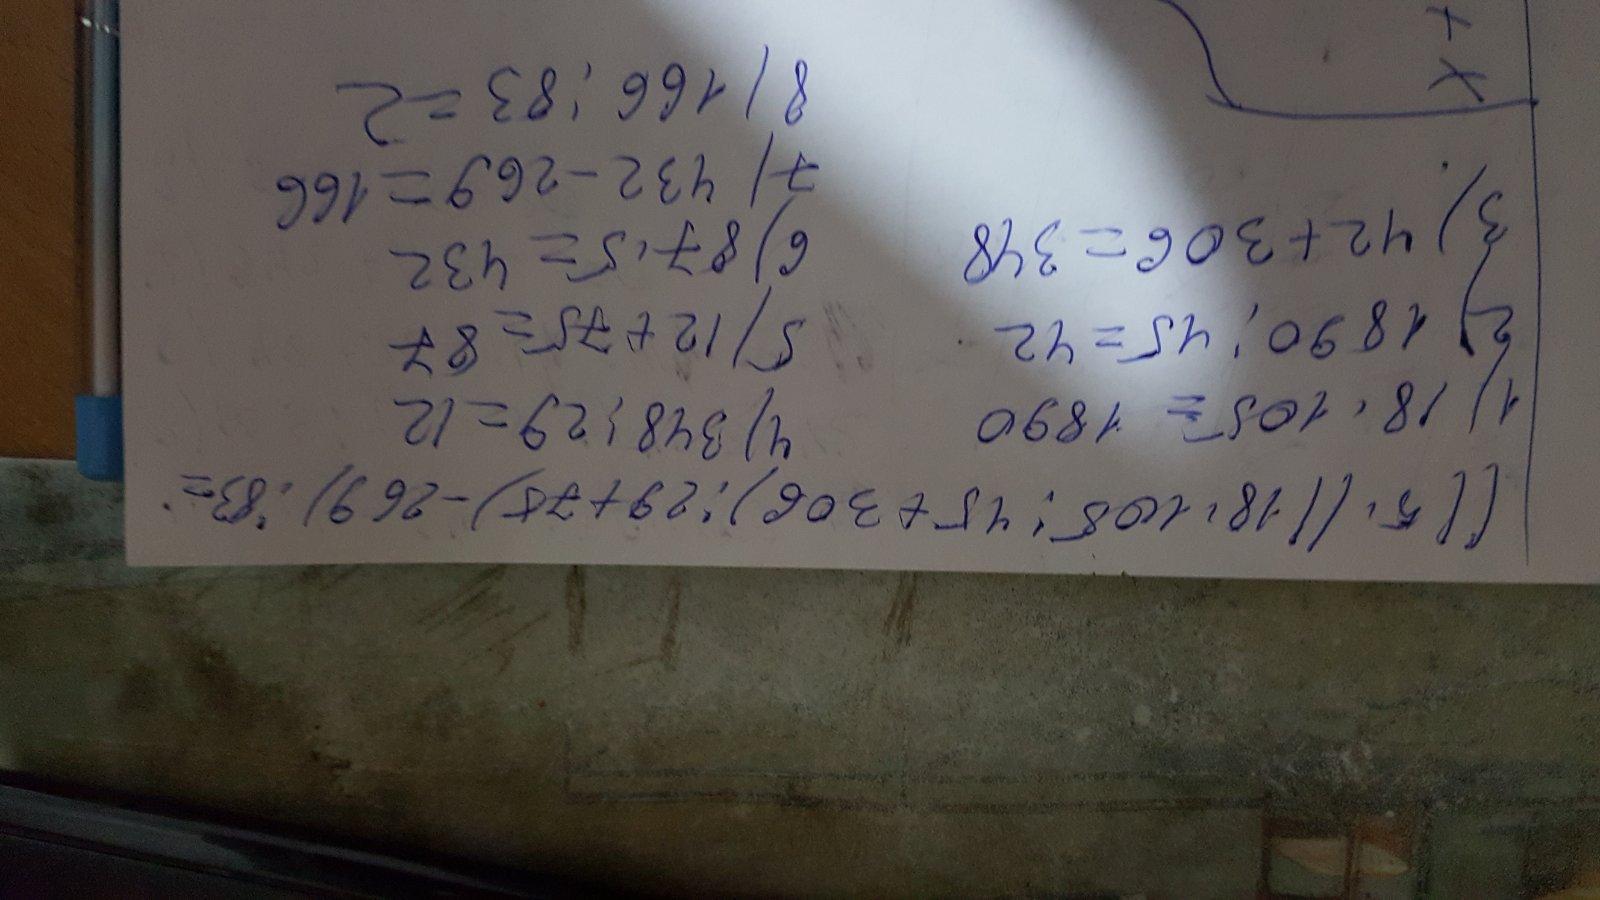 ((5·((18·105:45+306):29+75)-269):83=
1) 18·105=1890
2) 1890:45=42
3) 42+306=348
4) 348:29=12
5) 12+75=87
6) 87·5=432
7) 432-269=166
8) 166:83=2
x
+